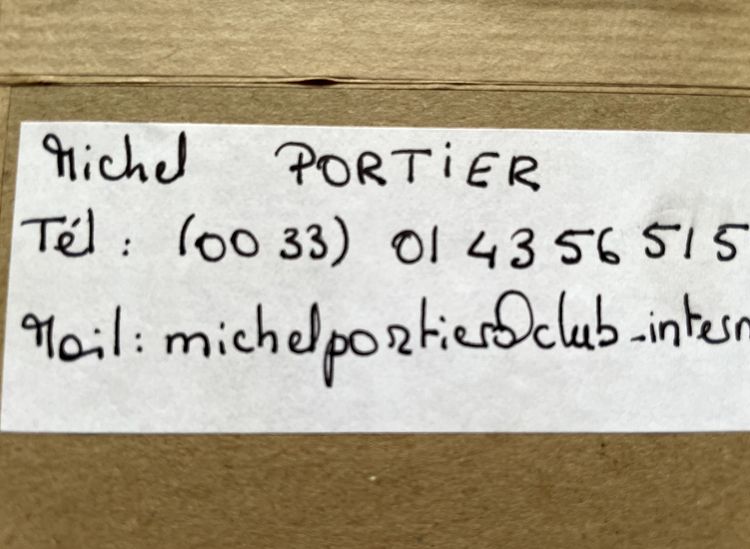 Michel PORTIER
Tél : (00 33) 01 43 56 51 5
Mail : michelportier@club-intern